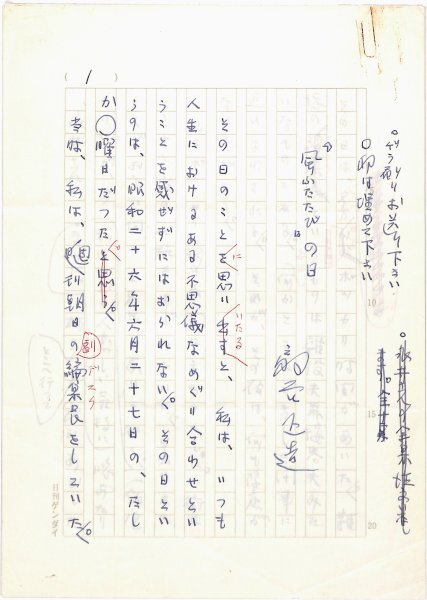 。ゲラ刷りお送り下さい
○印は埋めて下さい
風ふたたびの日
扇谷正造
その日のことを思い出すと、私は、いつも
に
いたる
人生におけるある不思議なめぐり合わせとい
うことを感ぜずにはおられない。その日とい
うのは、昭和二十六年六月二十七日の、たし
か○曜日だつたと思う。
当時、私は、週刊朝日の編集長をしていた。
副
デスク
(1)
10
15
20
日刊ゲンダイ